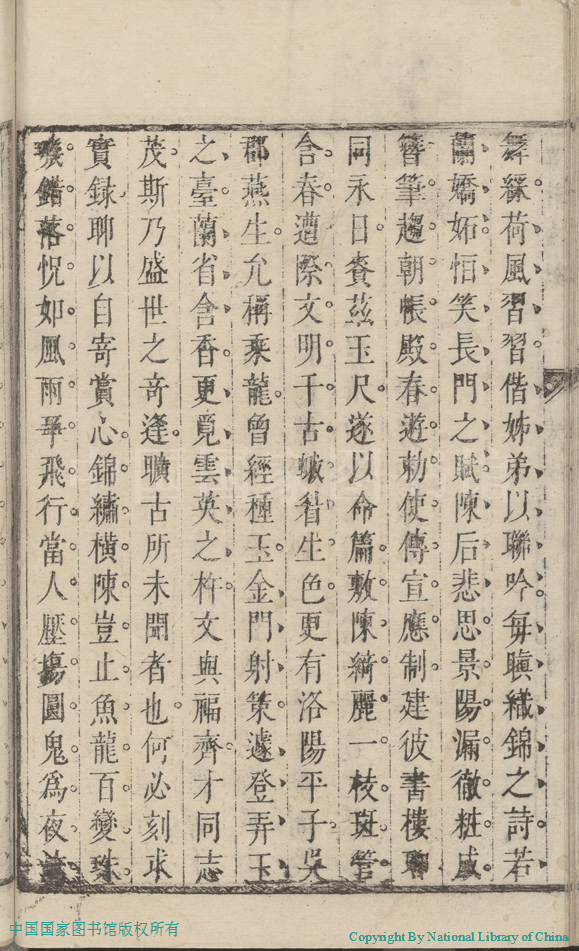 舞縩荷風習習偕姊弟以聯吟每瞋織錦之詩若
蘭嬌妬恒笑長門之賦陳后悲思景陽漏徹粧成
簪筆趨朝帳殿春遊勅使傳宣應制建彼書樓
同永日賚茲玉尺遂以命篇敷陳綺麗一枝斑管
含春遭際文明千古蛾眉生色更有洛陽平子吳
郡燕生允稱乘龍曾經種玉金門射策遽登弄玉
之臺蘭省含香更覓雲英之杵文與福齊才同志
茂斯乃盛世之奇逢曠古所未聞者也何必刻求
實録聊以自寄賞心錦繡橫陳豈止魚龍百變珠
璣錯落怳如風雨爭飛行當人壓摥圓鬼爲夜
中国国家图书馆版权所有
Copyright By National Library of China